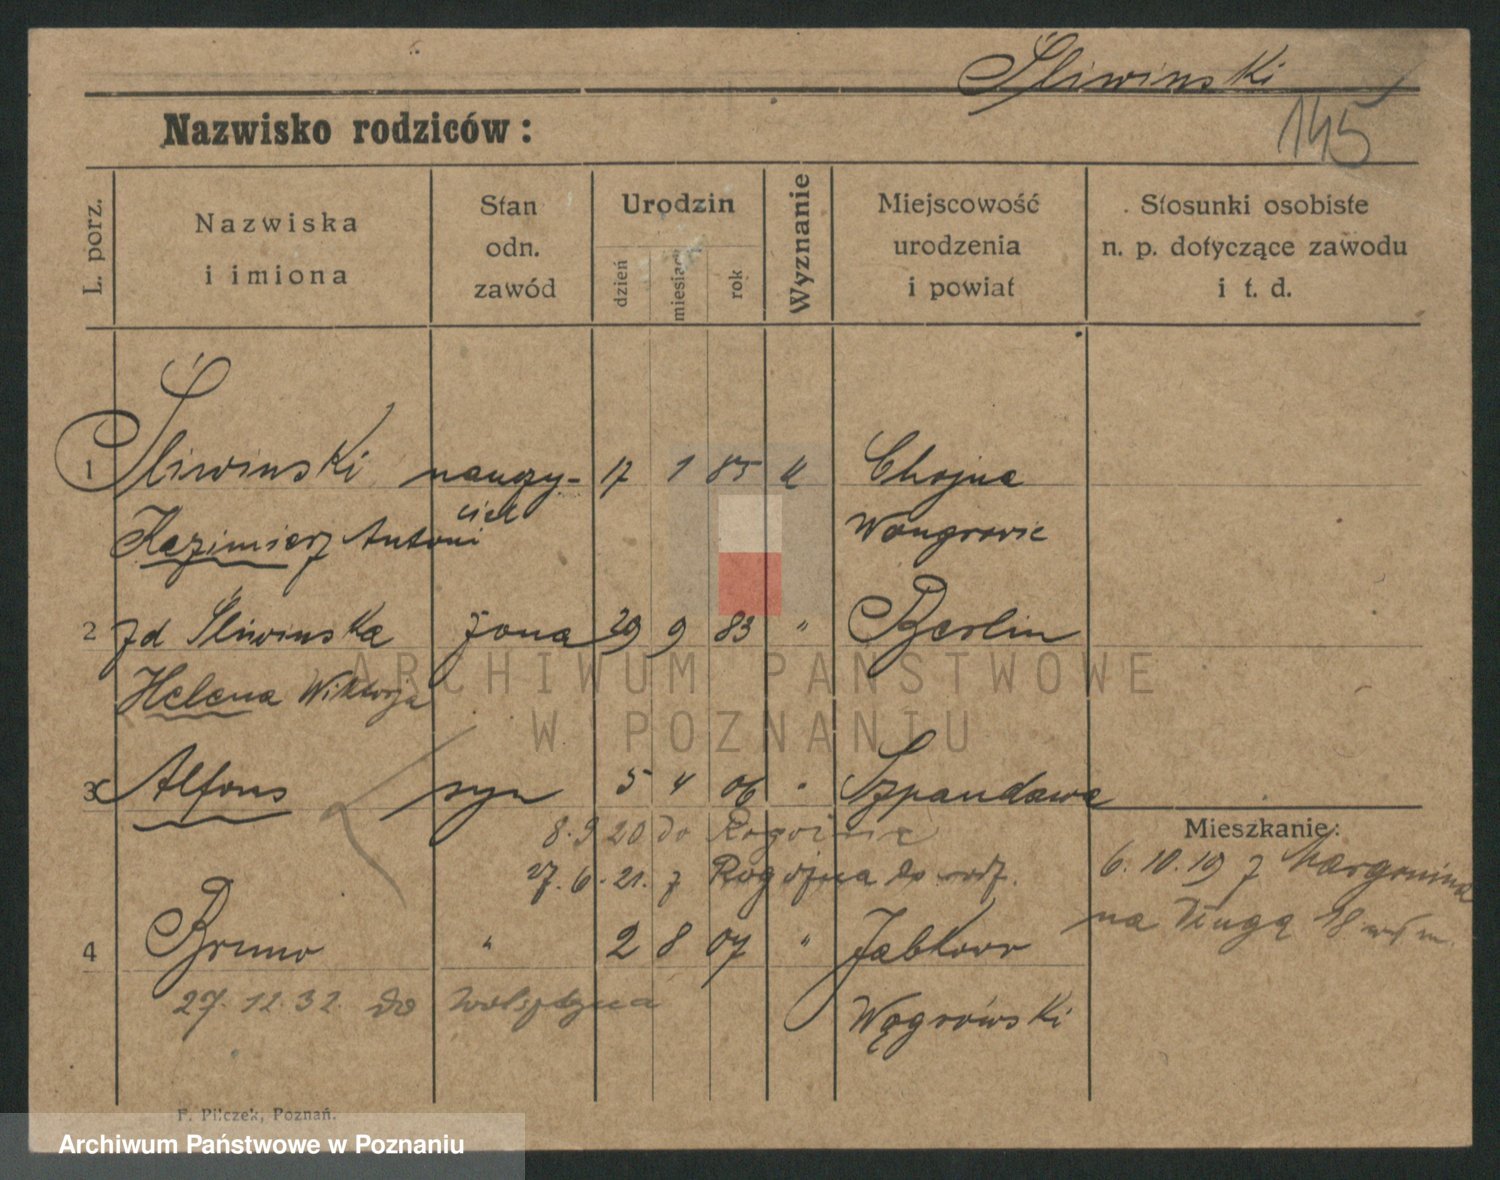 Śliwinski
145
Nazwisko rodziców:
L. porz.
Nazwiska
i imiona
Stan
odn.
zawód
Urodzin
dzień
miesiąc
rok
Wyznanie
Miejscowość
urodzenia
i powiat
Stosunki osobiste
n. p. dotyczące zawodu
i t. d.
1 Śliwinski nauczy- 17 1 85 k Chojna
ciel
Kazimierz Antoni Wongrowic
2 zd Śliwinska żona 29 9 83 " Berlin
Helena Wiktorja
3 Alfons syn 5 4 06 " Szpandawa
8.9 20 do Rogoźna
Mieszkanie:
27.6.21. z Rogoźna do rodz.
6.10.19 z Margonina
na Długą 18
4 Bruno " 2 8 07 " Jabkowo
27.12.32. do Wolsztyna
Wągrówski
F. Pilczek, Poznań.
ARCHIWUM PAŃSTWOWE
W POZNANIU
Archiwum Państwowe w Poznaniu